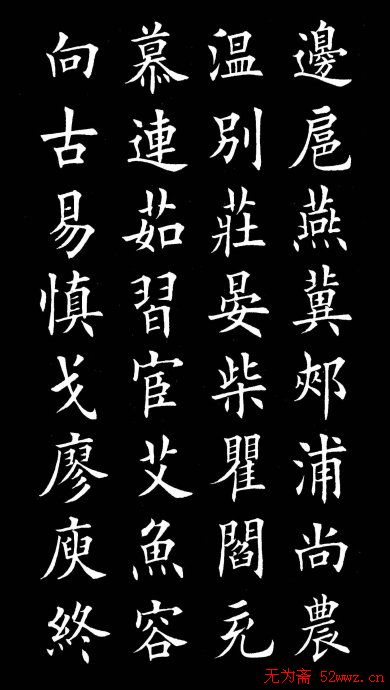 邊扈燕冀郟浦尚農
溫別莊晏柴瞿閻充
慕連茹習宦艾魚容
向古易慎戈廖庾終
无为斋 52wwz.cn